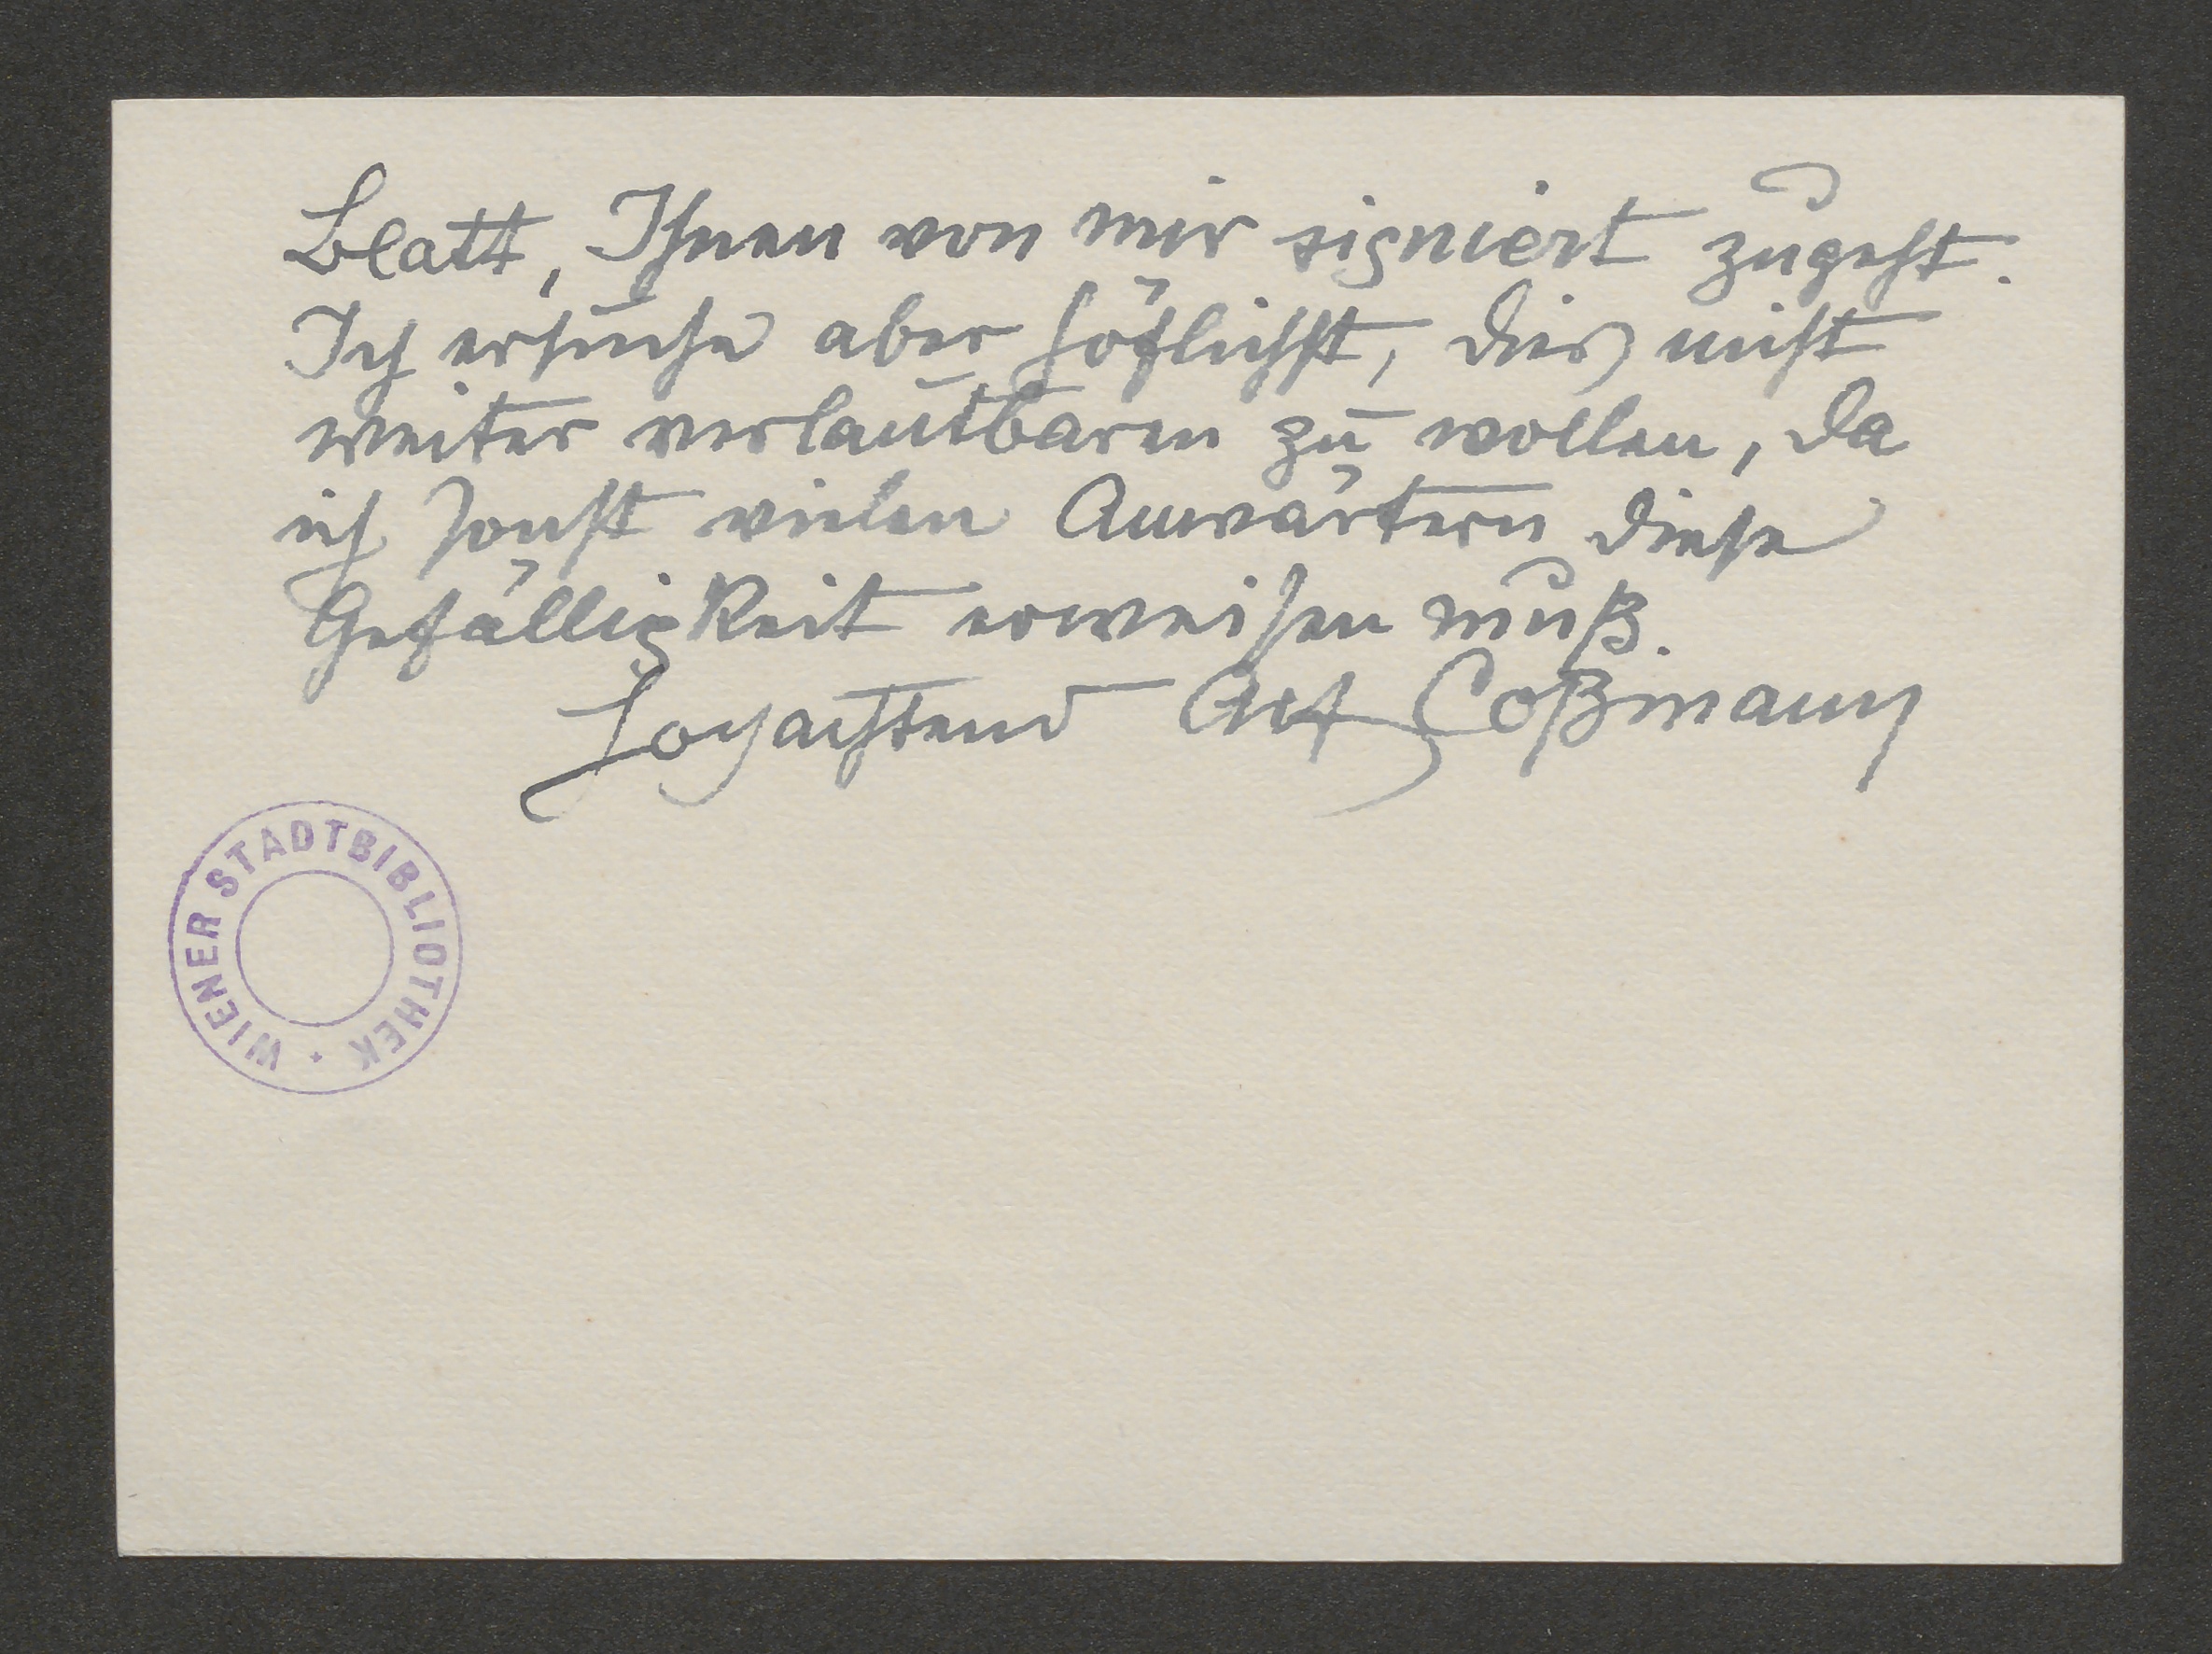 Blatt, Ihnen von mir signiert zugeht.
Ich ersuche aber höflichst, dies nicht
weiter verlautbaren zu wollen, da
ich sonst vielen Anwärtern diese
Gefälligkeit erweisen muß.
Hochachtend Alf Coßmann
WIENER STADTBIBLIOTHEK